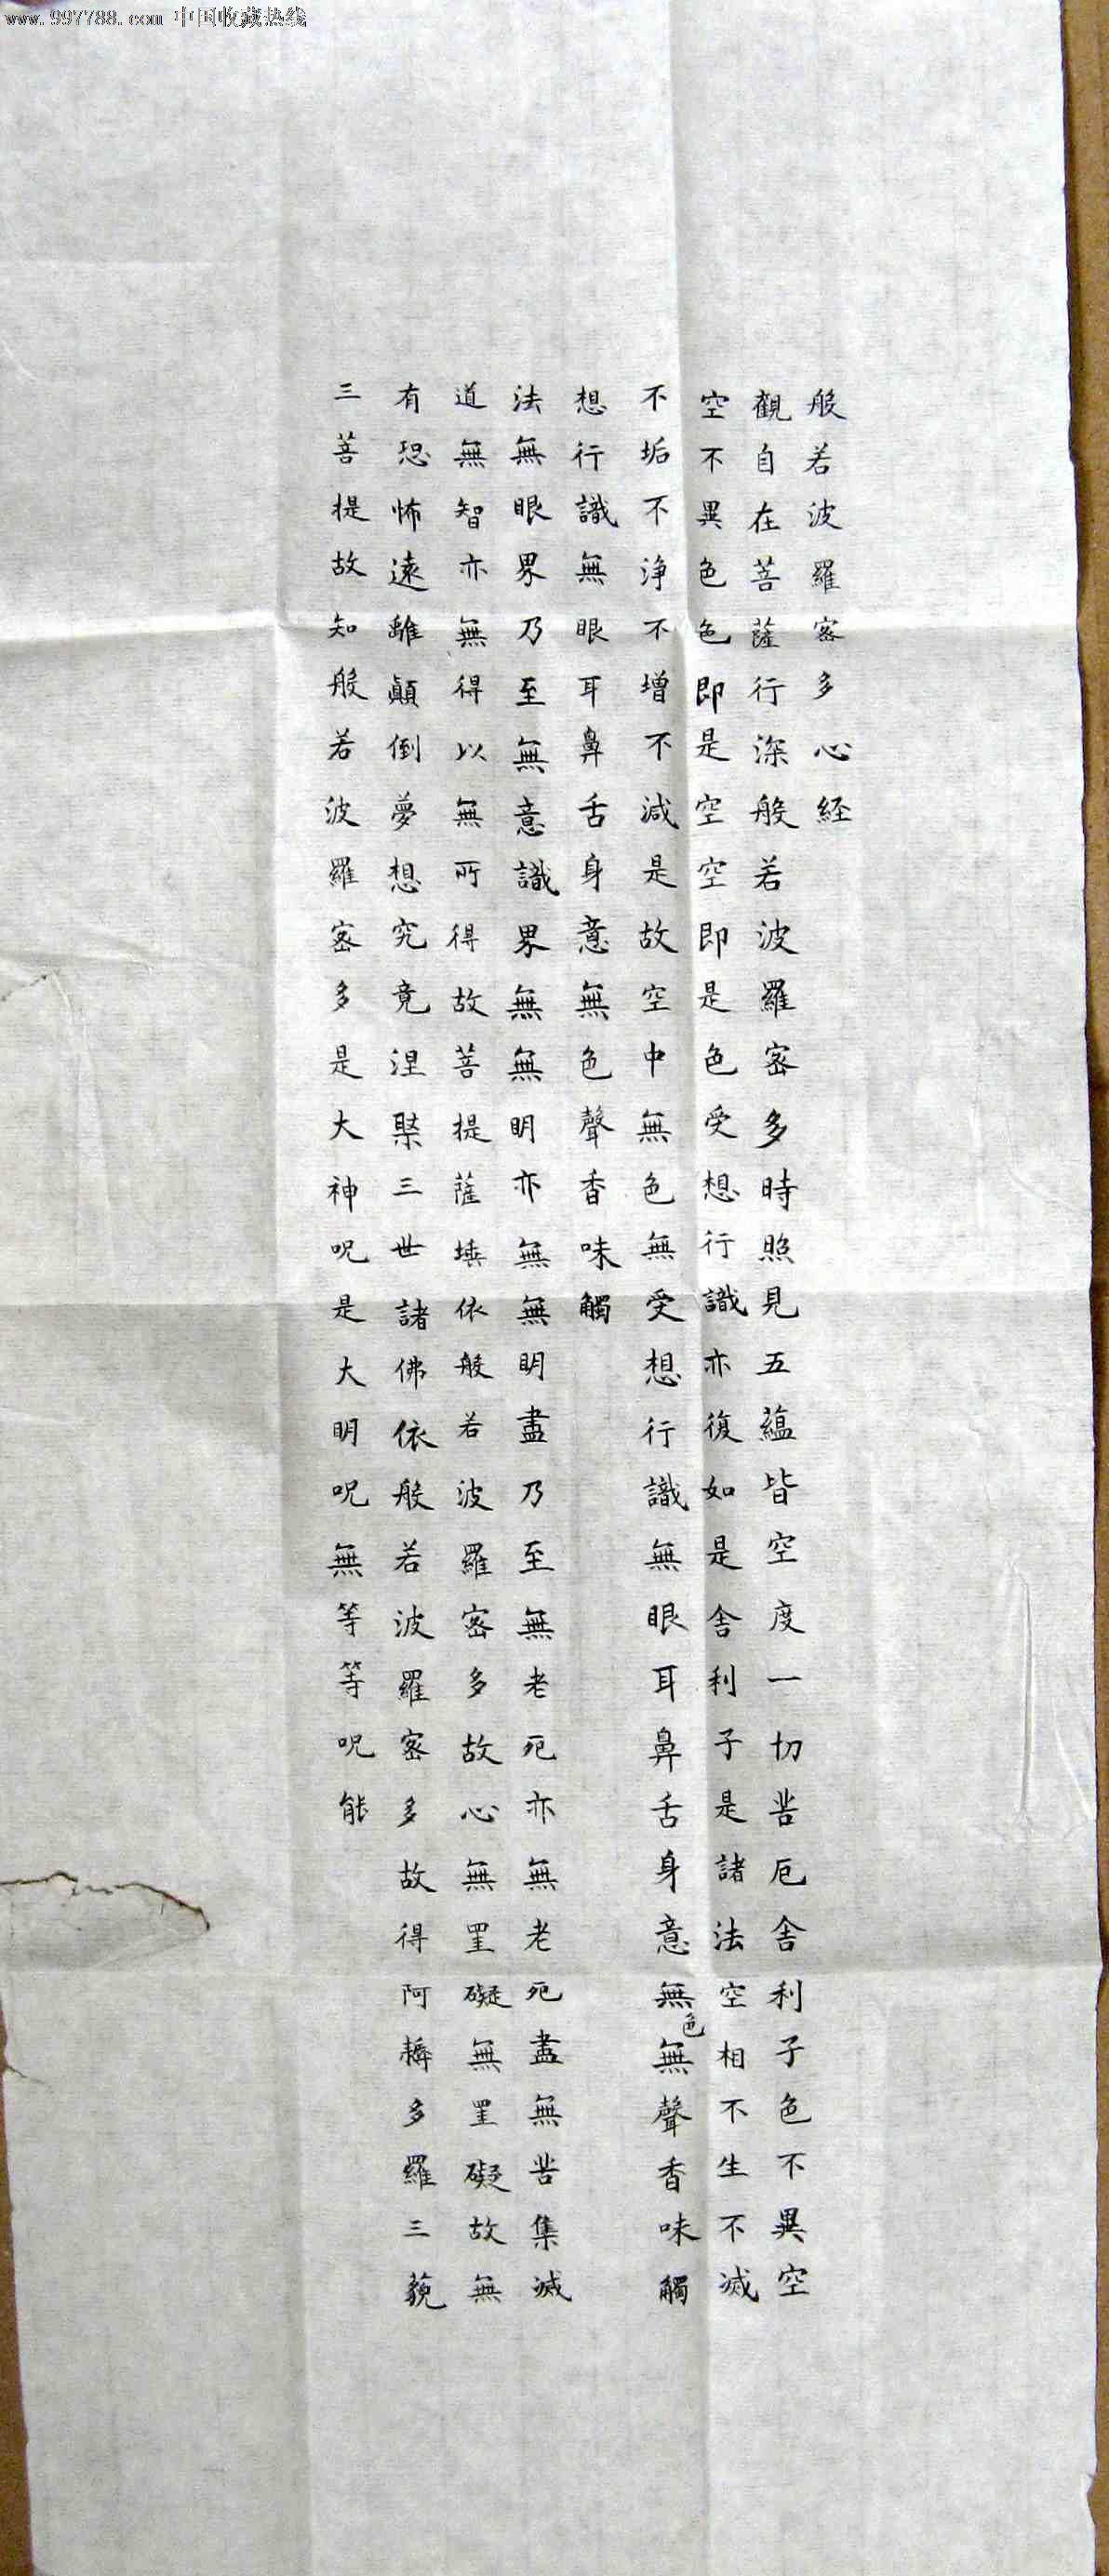 www.997788.com 中国收藏热线
般若波羅密多心経
觀自在菩薩行深般若波羅密多時照見五蘊皆空度一切苦厄舍利子色不異空
空不異色色即是空空即是色受想行識亦復如是舍利子是諸法空相不生不滅
不垢不淨不增不減是故空中無色無受想行識無眼耳鼻舌身意無色無聲香味觸
想行識無眼耳鼻舌身意無色聲香味觸
法無眼界乃至無意識界無無明亦無無明盡乃至無老死亦無老死盡無苦集滅
道無智亦無得以無所得故菩提薩埵依般若波羅密多故心無罣礙無罣礙故無
有恐怖遠離顛倒夢想究竟涅槃三世諸佛依般若波羅密多故得阿耨多羅三藐
三菩提故知般若波羅密多是大神呪是大明呪無等等呪能